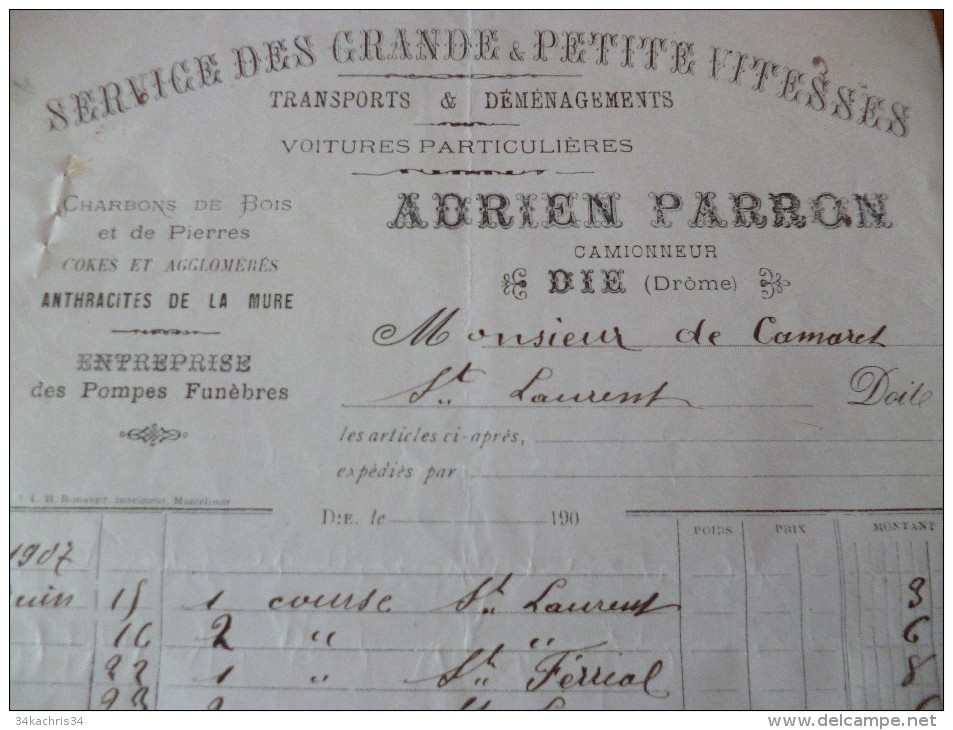 SERVICE DES GRANDE & PETITE VITESSES
TRANSPORTS & DÉMÉNAGEMENTS
VOITURES PARTICULIÈRES
CHARBONS DE BOIS
et de Pierres
COKES ET AGGLOMÉRÉS
ANTHRACITES DE LA MURE
ENTREPRISE
des Pompes Funèbres
ADRIEN PARRON
CAMIONNEUR
DIE (Drôme)
Monsieur de Camaret
St Laurent Doit
les articles ci-après,
expédiés par
Imprimeur, Montélimar
DIE, le 190
POIDS PRIX MONTANT
1907
juin 15 1 course St Laurent 3
16 2 " " 6
22 1 " St Ferriol 8
23
34kachris34
www.delcampe.net